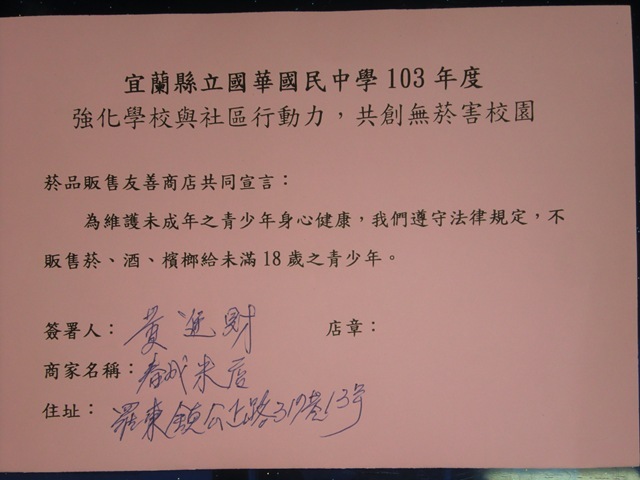 宜蘭縣立國華國民中學 103 年度
強化學校與社區行動力，共創無菸害校園
菸品販售友善商店共同宣言：
為維護未成年之青少年身心健康，我們遵守法律規定，不
販售菸、酒、檳榔給未滿 18 歲之青少年。
簽署人：黃進財 店章：
商家名稱：春成米店
住址：羅東鎮公正路317巷13号